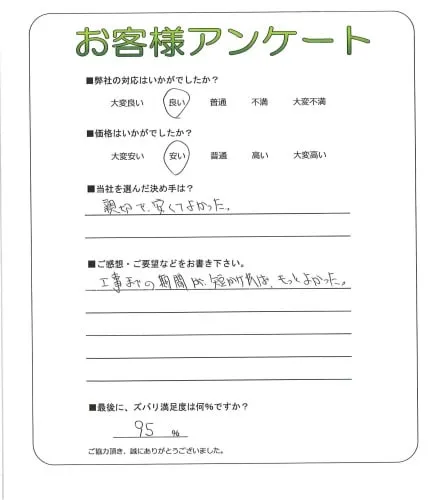 お客様アンケート
■弊社の対応はいかがでしたか？
大変良い 良い 普通 不満 大変不満
■価格はいかがでしたか？
大変安い 安い 普通 高い 大変高い
■当社を選んだ決め手は？
親切で、安くてよかった。
■ご感想・ご要望などをお書き下さい。
工事までの期間が、短かければ、もっとよかった。
■最後に、ズバリ満足度は何％ですか？
95 ％
ご協力頂き、誠にありがとうございました。